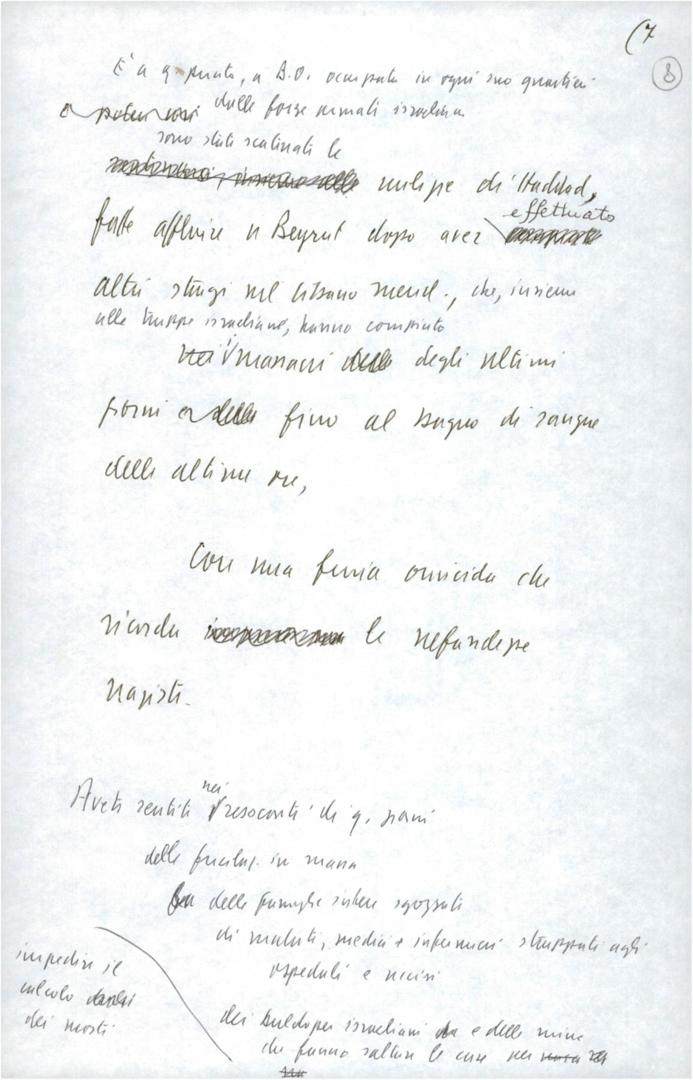 (7
8
È a q. punto, a B.O. occupata in ogni suo quartiere
dalle forze armate israeliane
sono state scatenate le
milizie di Haddad,
fatte affluire a Beyrut dopo aver effettuato
altri stragi nel Libano merid., che, insieme
alle truppe israeliane, hanno compiuto
i massacri degli ultimi
giorni fino al bagno di sangue
delle ultime ore,
Con una furia omicida che
ricorda le nefandezze
naziste.
Avete sentito nei resoconti di q. giorni
delle fucilaz. in massa
delle famiglie intere sgozzate
di malati, medici e infermieri strappati agli
ospedali e uccisi
impedire il
calcolo
dei morti
dei buldozer israeliani e delle mine
che fanno saltare le case